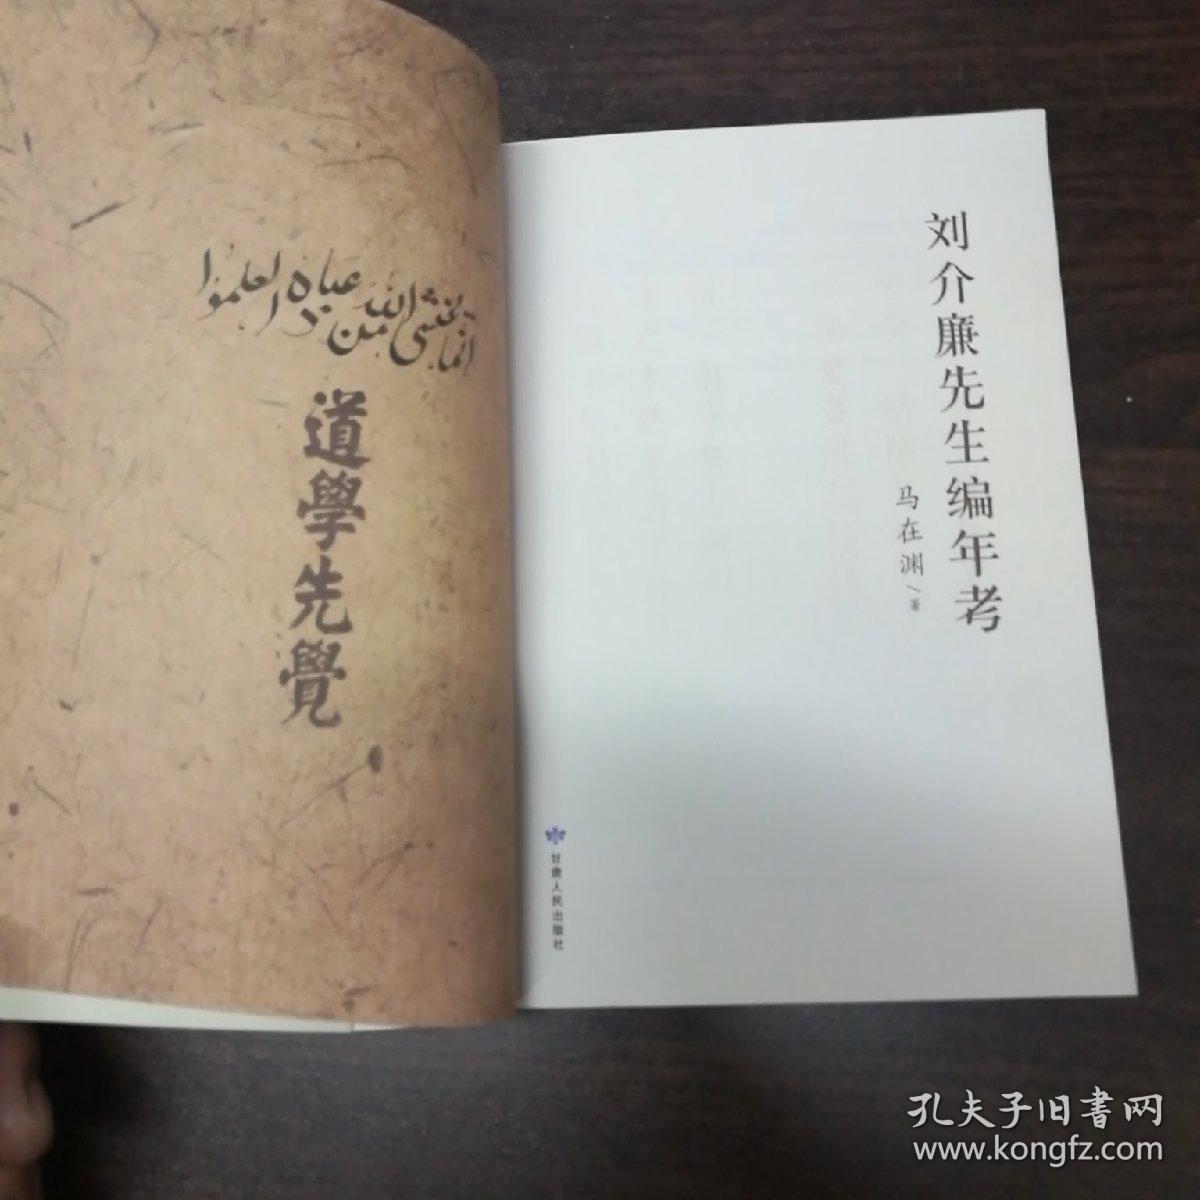 انما يخشى الله من عباده العلموا
道學先覺
刘介廉先生编年考
马在渊/著
甘肃人民出版社
孔夫子旧书网
www.kongfz.com